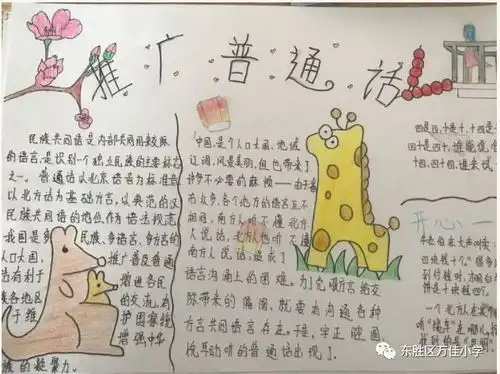 推广普通话
民族共同语是民族内部共同用来交际
的语言,是识别一个独立民族的主要标志
之一。普通话以北京语音为标准音
以北方话为基础方言,以典范的汉
民族共同语的地位作为语法规范
我国是多民族、多语言、多方言的
人口大国,推广普及普通
话有利于增进各民
族各地区的交流,
于维护国家统
增强中华
族的凝聚力。
中国,是个人口大国,地域
辽阔,风景美丽,但也带来了
许多不必要的麻烦——由于
市众多,各个地方的语言互不
相同,南方人听不懂北方
人说话,北方人也听不懂
南方人说话,造成了
语言沟通上的困难。为了克服方言给交
际带来的隔阂,就要有沟通各种
方言共同语言存在。于是,字正腔圆
抑扬动听的普通话出现了。
四是四,十是十,十四是
十四,
开心一
东胜区万佳小学